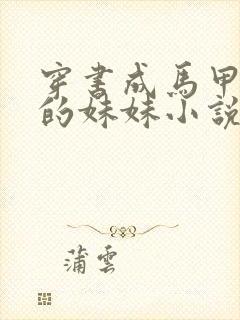 穿書成馬甲
的妹妹小說
蒲雲